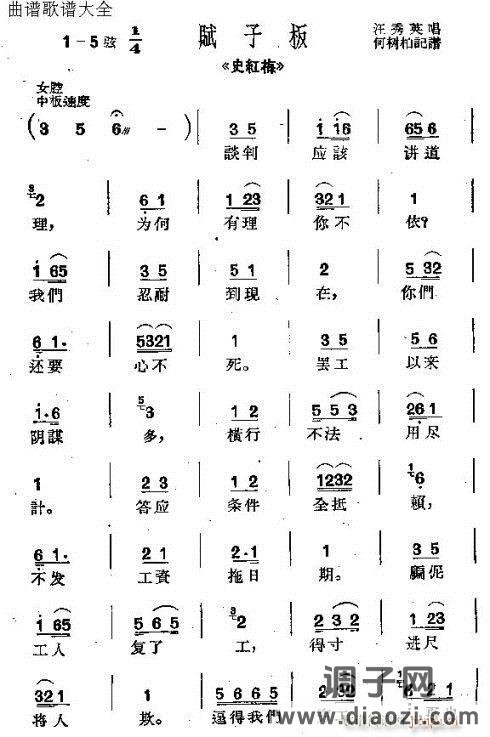 曲谱歌谱大全
1-5弦 1/4 賦子板 汪秀英唱
《史紅梅》 何树柏記譜
女腔
中板速度
(3 5 6 -) 3 5 1 16 65 6
談判 应該 讲道
3 2 6 1 1 23 321 1
理, 为何 有理 你不 依?
1 65 3 5 5 1 2 5 32
我們 忍耐 到現 在, 你們
6 1. 5321 1 3 5 5 6
还要 心不 死。 罢工 以来
1.6 5 3 1 2 5 5 3 261
阴謀 多, 橫行 不法 用尽
1 2 3 1 2 1232 1 6
計。 答应 条件 全抵 賴,
6 1. 2 1 2.1 1 3 5
不发 工資 拖日 期。
1 65 5 6 5 3 2 2 3 2 2 1
工人 复了 工, 得寸 进尺
321 1 5 6 6 5
将人 欺。 逼得我們
调子网
www.diaozi.com